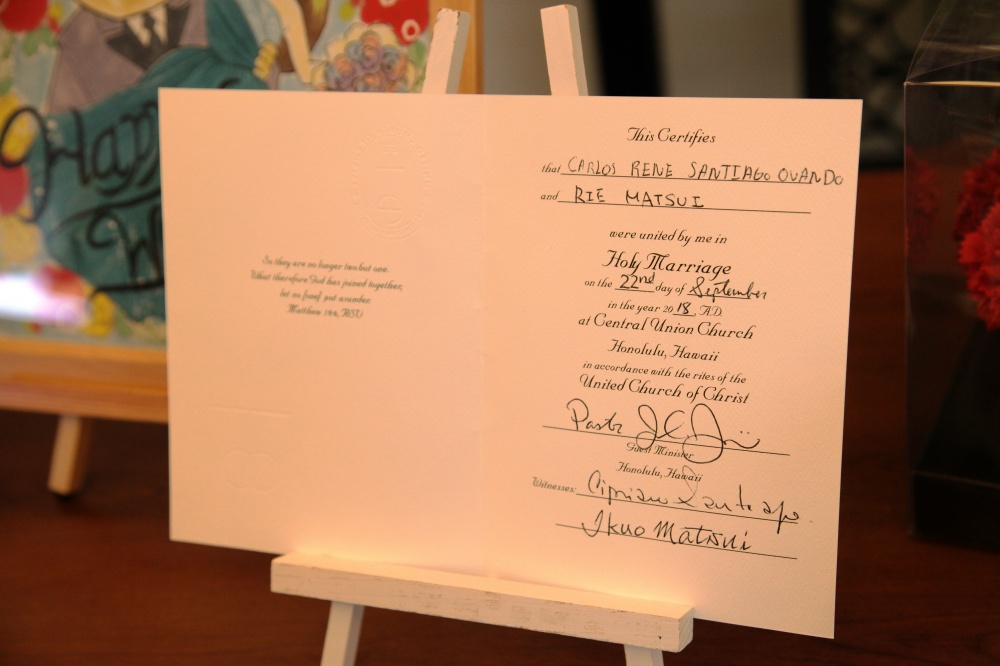 Happy
W
So they are no longer two but one.
What therefore God has joined together,
let no
put asunder.
Matthew 19:6, RSV
This Certifies
that CARLOS RENE SANTIAGO OVANDO
and RIE MATSUI
were united by me in
Holy Marriage
on the 22nd day of September
in the year 2018, A.D.
at Central Union Church
Honolulu, Hawaii
in accordance with the rites of the
United Church of Christ
Pastr
Guest Minister
Honolulu, Hawaii
Witnesses: Cipriano Santiago
Ikuo Matsui